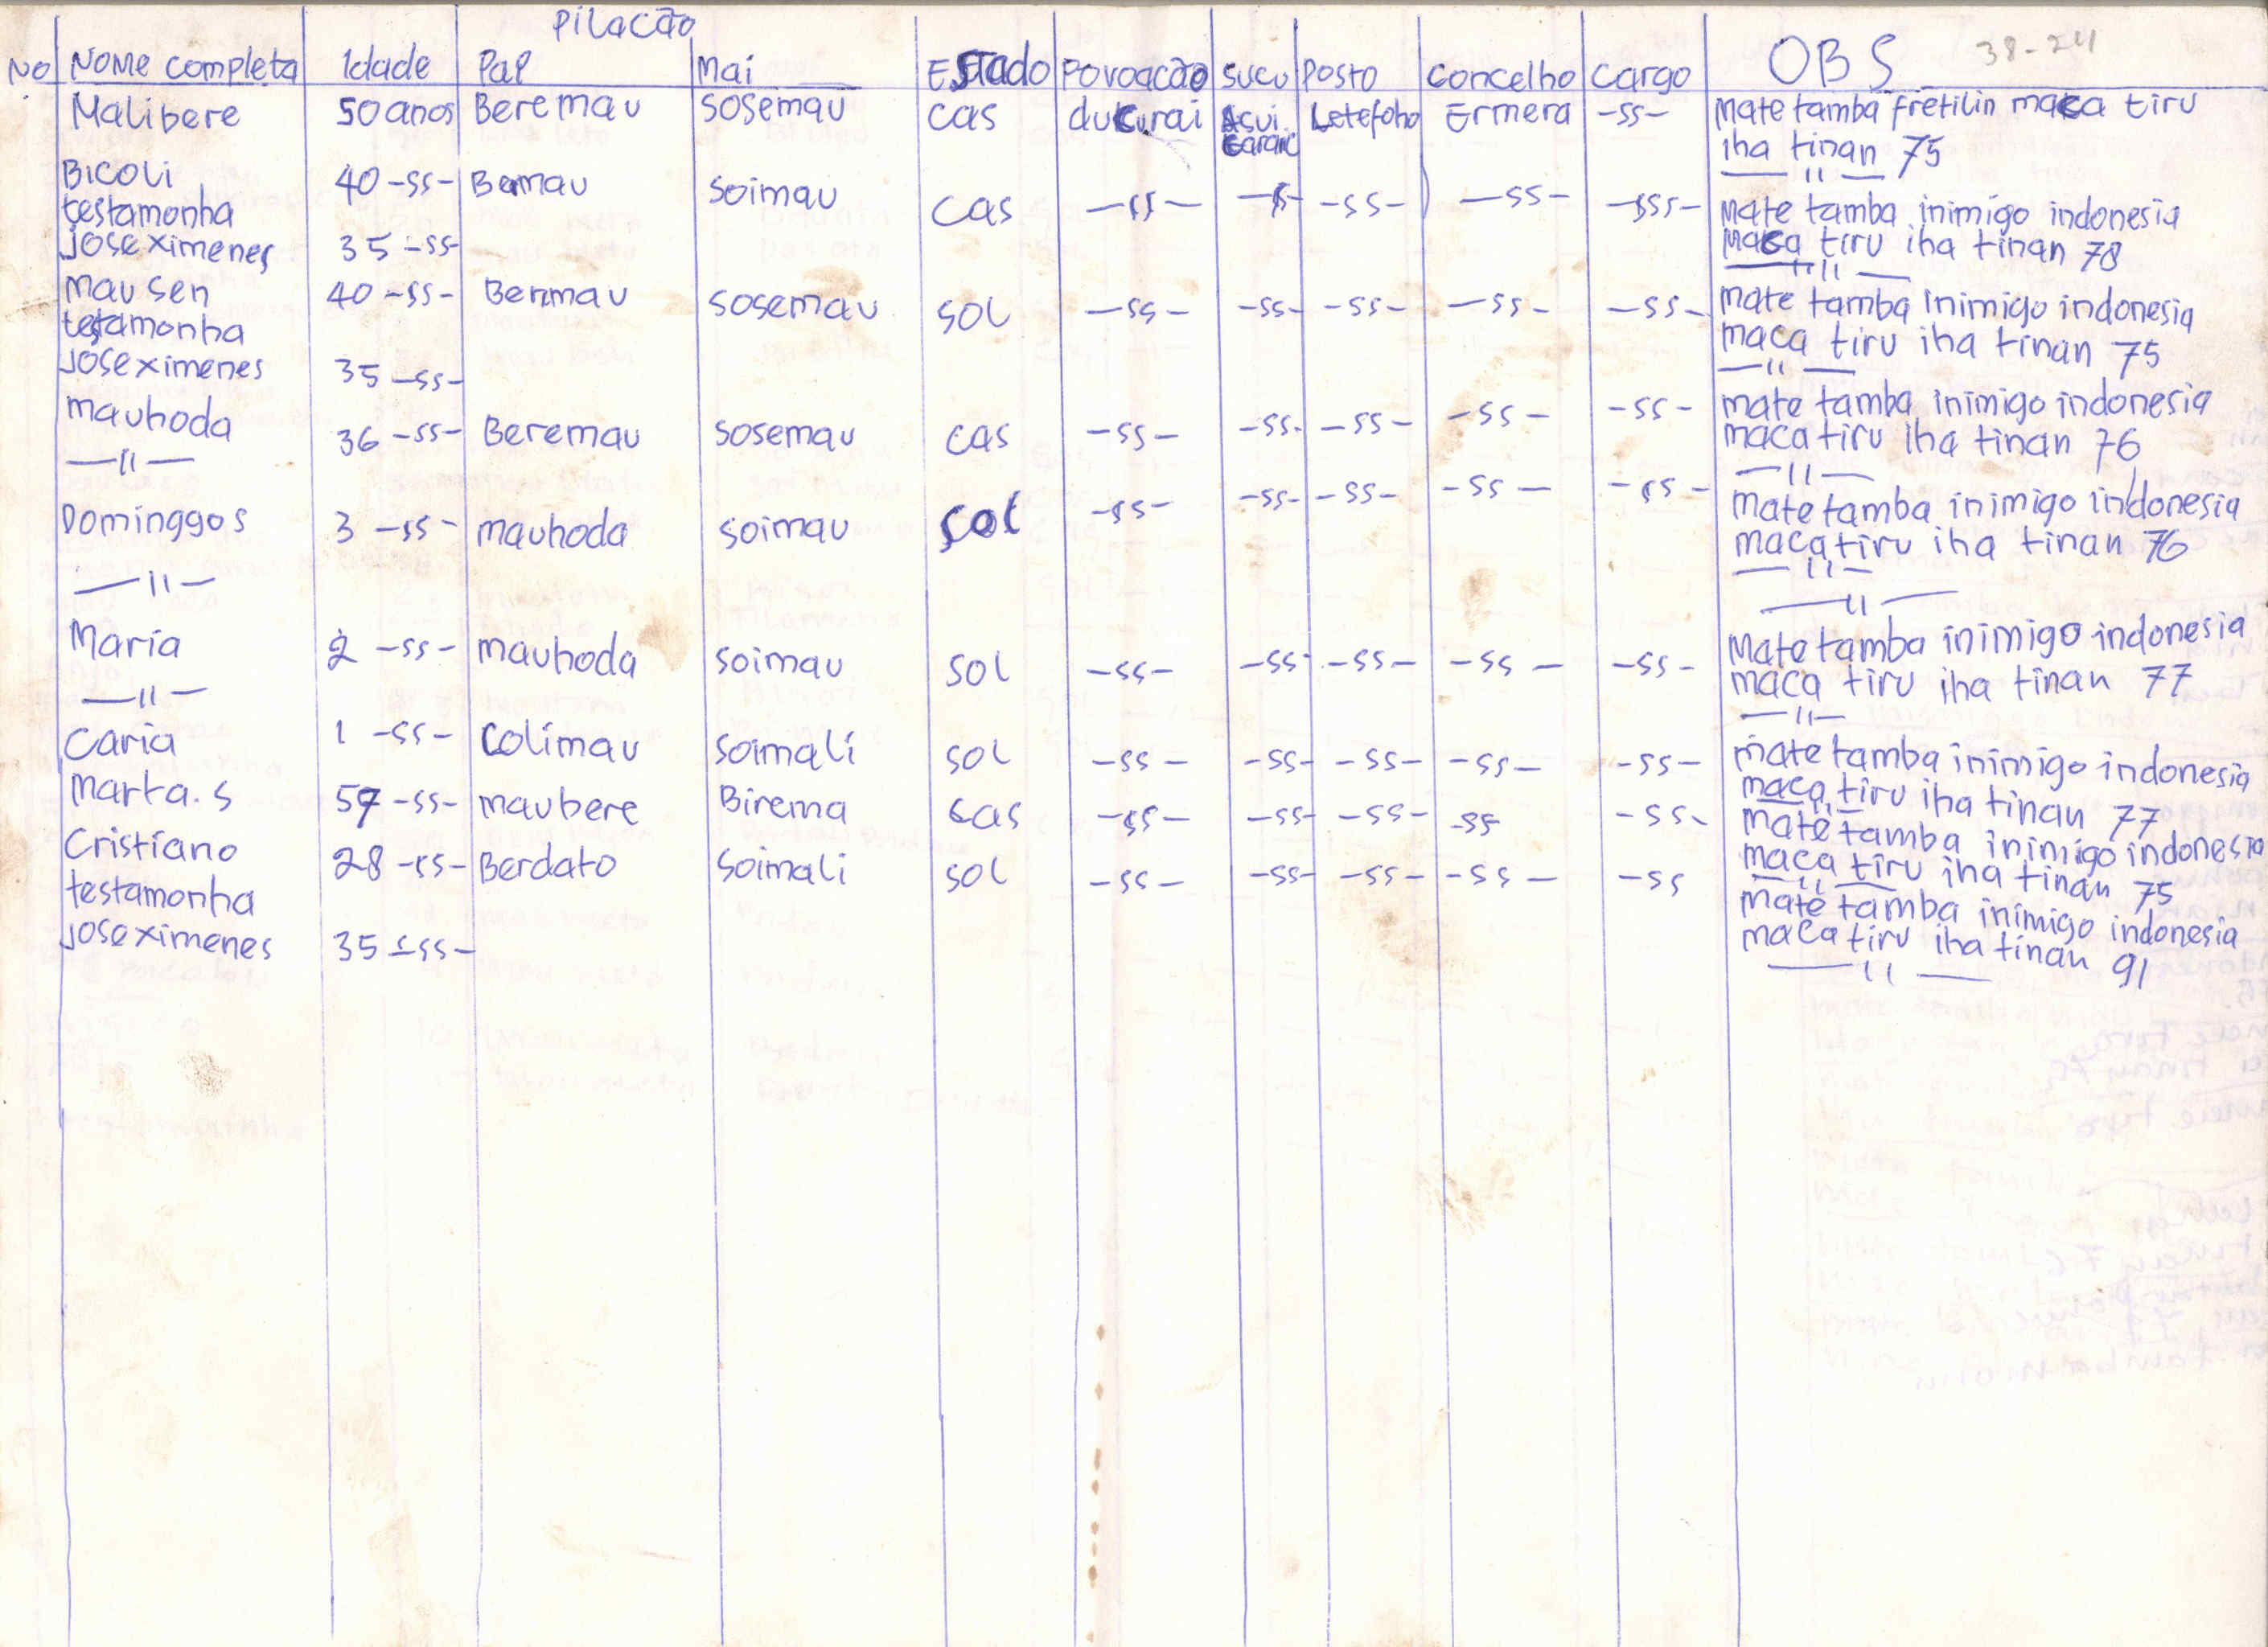 Pilacão
No Nome completa Idade Pai Mai EStado Povoacão sucu Posto concelho cargo OBS 38-24
Malibere 50 anos Beremau sosemau cas ducurai Letefoho Ermera -ss- Mate tamba fretilin maca tiru
iha tinan 75
— " —
Bicoli 40 -ss- Bermau soimau cas -ss- -ss- -ss- -ss- -sss- mate tamba inimigo indonesia
testamonha maca tiru iha tinan 78
Jose ximenes 35 -ss- — " —
mau sen 40 -ss- Bermau sosemau sol -ss- -ss- -ss- -ss- -ss- mate tamba inimigo indonesia
testamonha maca tiru iha tinan 75
Jose ximenes 35 -ss- — " —
mauhoda 36 -ss- Beremau sosemau cas -ss- -ss- -ss- -ss- -ss- mate tamba inimigo indonesia
— " — maca tiru iha tinan 76
— " —
Dominggos 3 -ss- mauhoda soimau sol -ss- -ss- -ss- -ss- -ss- mate tamba inimigo indonesia
— " — maca tiru iha tinan 76
— " —
— " —
Maria 2 -ss- mauhoda soimau sol -ss- -ss- -ss- -ss- -ss- Mate tamba inimigo indonesia
— " — maca tiru iha tinan 77
— " —
Caria 1 -ss- Colimau soimali sol -ss- -ss- -ss- -ss- -ss- mate tamba inimigo indonesia
maca tiru iha tinan 77
Marta. S -ss- maubere Birema cas -ss- -ss- -ss- -ss -ss- mate tamba inimigo indonesia
maca tiru iha tinan 75
Cristiano 28 -ss- Berdato soimali sol -ss- -ss- -ss- -ss- -ss mate tamba inimigo indonesia
testamonha maca tiru iha tinan 91
Jose ximenes 35 -ss- — " —